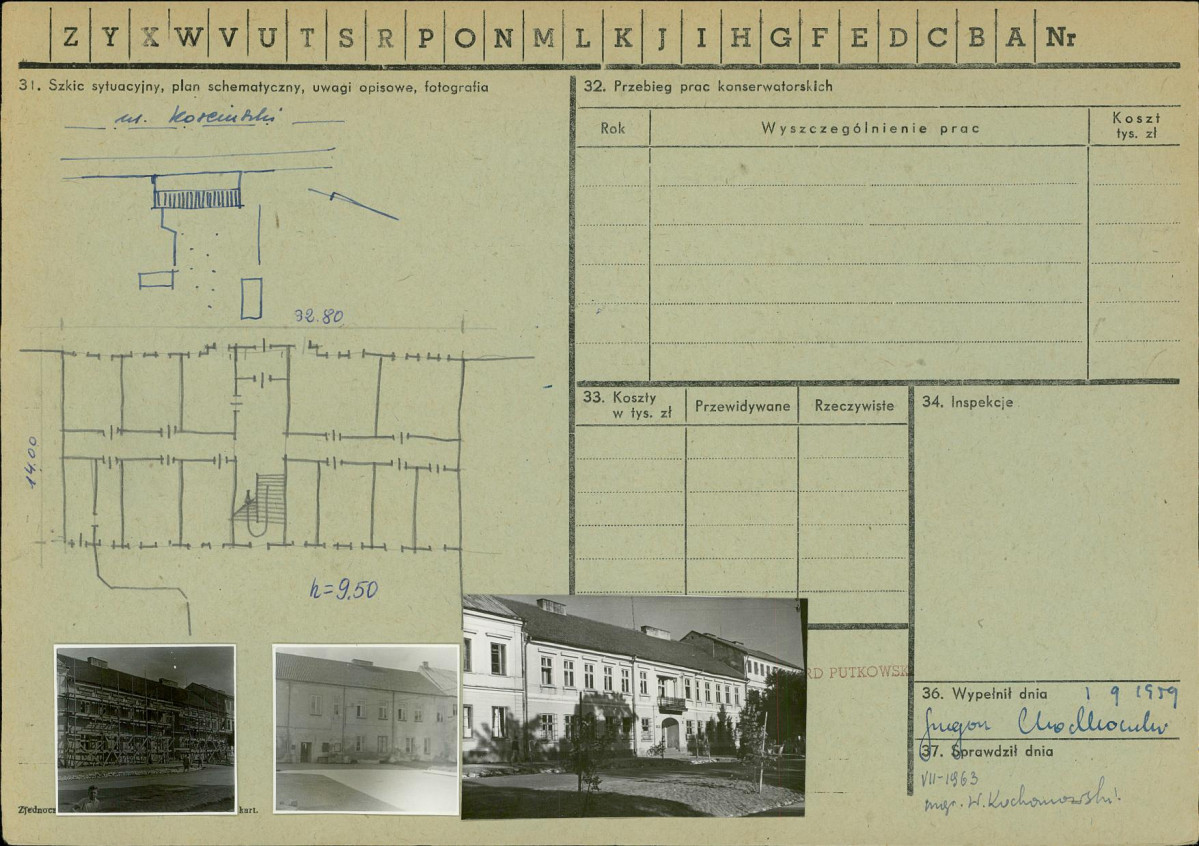 Z Y X W V U T S R P O N M L K J I H G F E D C B A Nr
31. Szkic sytuacyjny, plan schematyczny, uwagi opisowe, fotografia
ul. Kościuszki
32.80
14.00
h=9.50
Zjednocz
kart.
32. Przebieg prac konserwatorskich
Rok
Wyszczególnienie prac
Koszt
tys. zł
33. Koszty
w tys. zł
Przewidywane
Rzeczywiste
RD PUTKOWSK
34. Inspekcje
36. Wypełnił dnia 1 9 1959
37. Sprawdził dnia
VII-1963
mgr. W. Kochanowski